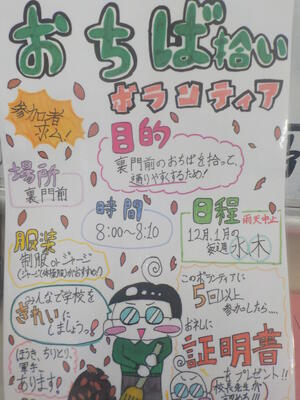 おちば拾い
ボランティア
参加者
求ム!
目的
裏門前のおちばを拾って、
通りやすくするため!
場所
裏門前
時間
8:00~8:10
日程
雨天中止
12月、1月の
水 木
服装
制服 or ジャージ
みんなで学校を
きれいに
しましょう。
ほうき、ちりとり、
軍手、
あります!
このボランティアに
5回以上
参加したら....
お礼に
証明書
をプレゼント!!
校長先生が
認める!!!